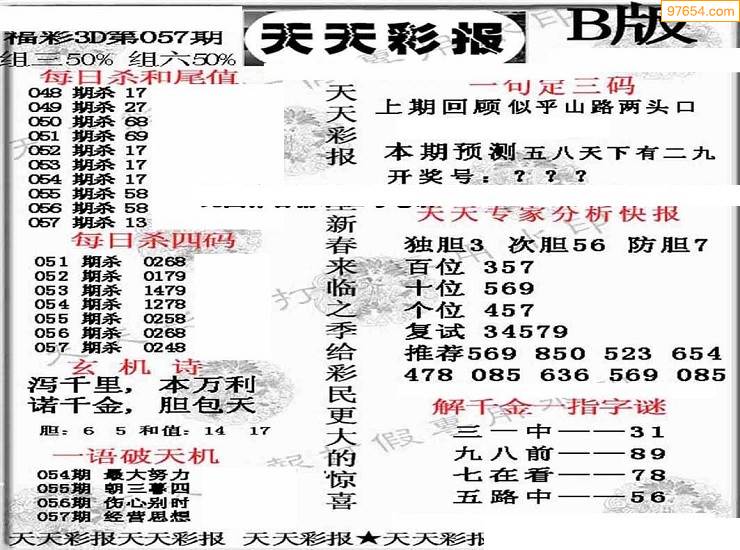 97654.com
福彩3D第057期
天天彩报
B版
组三50% 组六50%
每日杀和尾值
048 期杀 17
049 期杀 27
050 期杀 68
051 期杀 69
052 期杀 17
053 期杀 17
054 期杀 17
055 期杀 58
056 期杀 58
057 期杀 13
每日杀四码
051 期杀 0268
052 期杀 0179
053 期杀 1479
054 期杀 1278
055 期杀 0258
056 期杀 0268
057 期杀 0248
玄机诗
泻千里，本万利
诺千金，胆包天
胆：6 5 和值：14 17
一语破天机
054期 最大努力
055期 朝三暮四
056期 伤心别时
057期 经营思想
天天彩报
新春来临之季给彩民更大的惊喜
一句定三码
上期回顾似乎山路两头口
本期预测五八天下有二九
开奖号：？？？
天天专家分析快报
独胆3 次胆56 防胆7
百位 357
十位 569
个位 457
复试 34579
推荐569 850 523 654
478 085 636 569 085
解千金一指字谜
三一中——31
九八前——89
七在看——78
五路中——56
天天彩报天天彩报 天天彩报★天天彩报